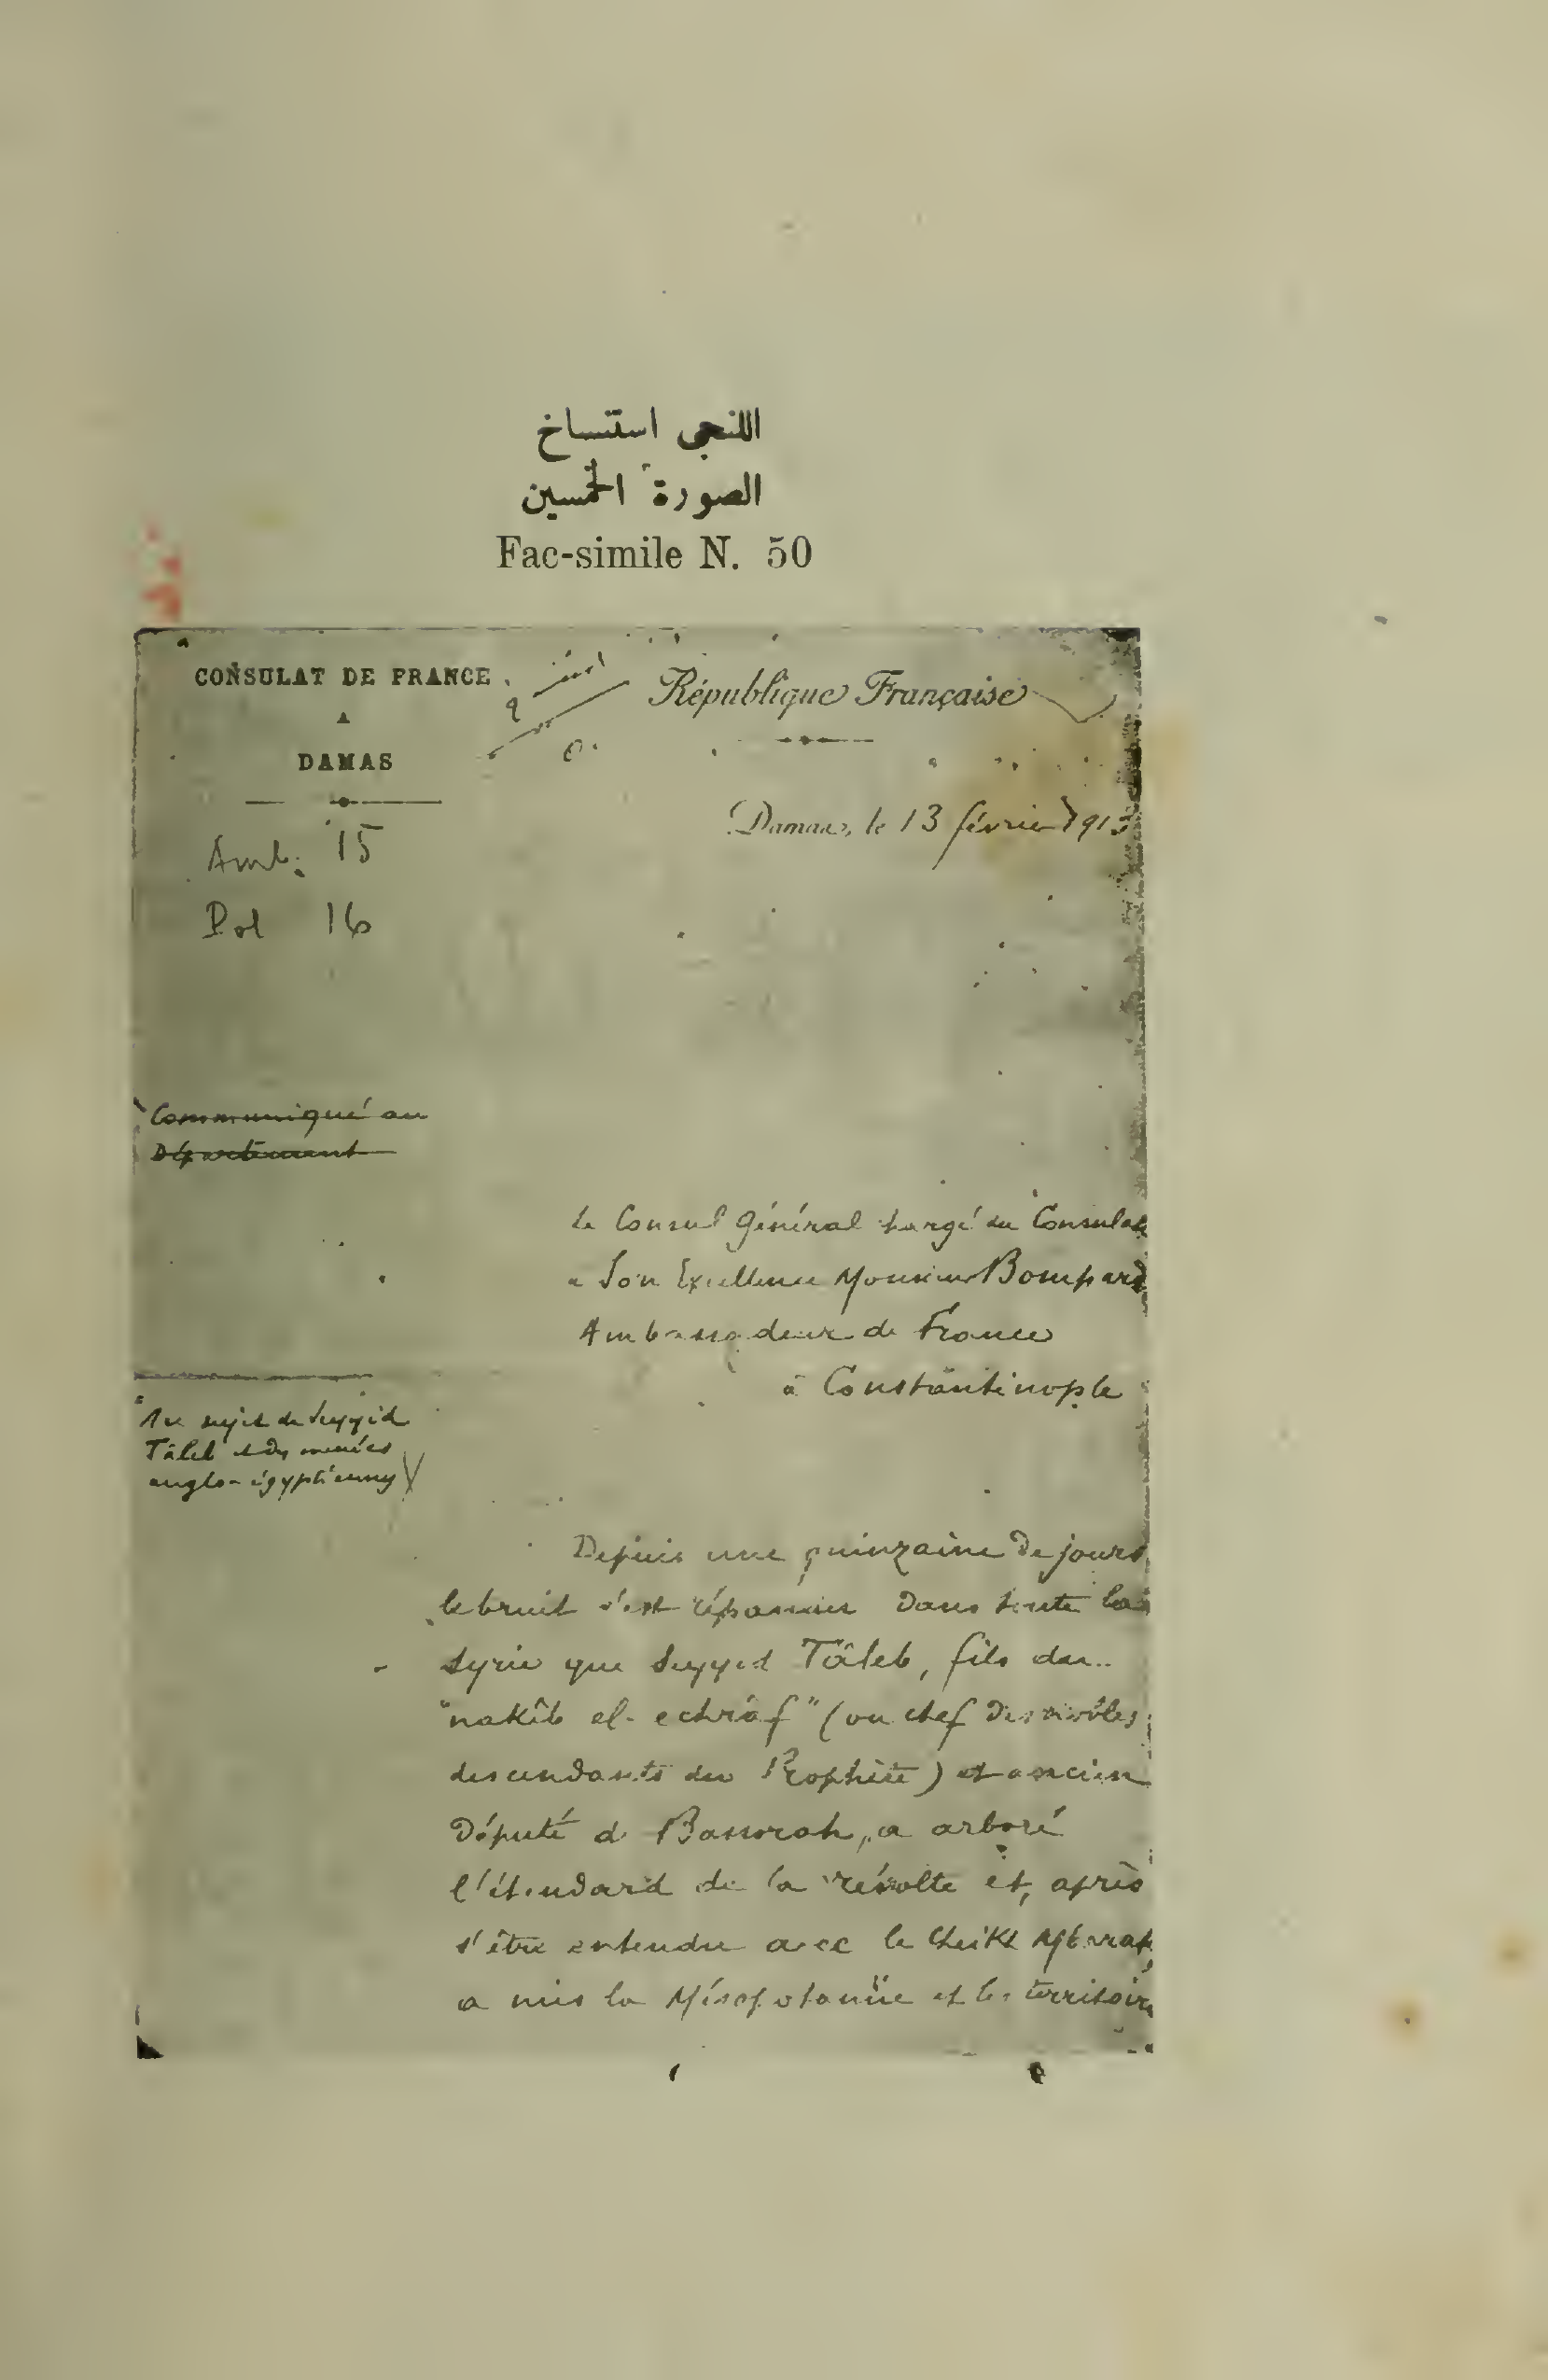 اللنجى استنساخ
الصورة الخمسين
Fac-simile N. 50
CONSULAT DE FRANCE
A
DAMAS
République Française
Damas, le 13 février 1913
Amb. 15
Pol 16
Communiqué au
Département
Le Consul Général chargé du Consulat
a Son Excellence Monsieur Bompard
Ambassadeur de France
à Constantinople
Au sujet de Seyyid
Tâleb et des menées
anglo-égyptiennes
Depuis une quinzaine de jours
le bruit s'est répandu dans toute la
Syrie que Seyyid Tâleb, fils du
"nakîb el-echrâf" (ou chef des nobles
descendants du Prophète) et ancien
Député de Bassorah, a arboré
l'étendard de la révolte et, après
s'être entendu avec le Cheikh
a mis la Mésopotamie et les territoires